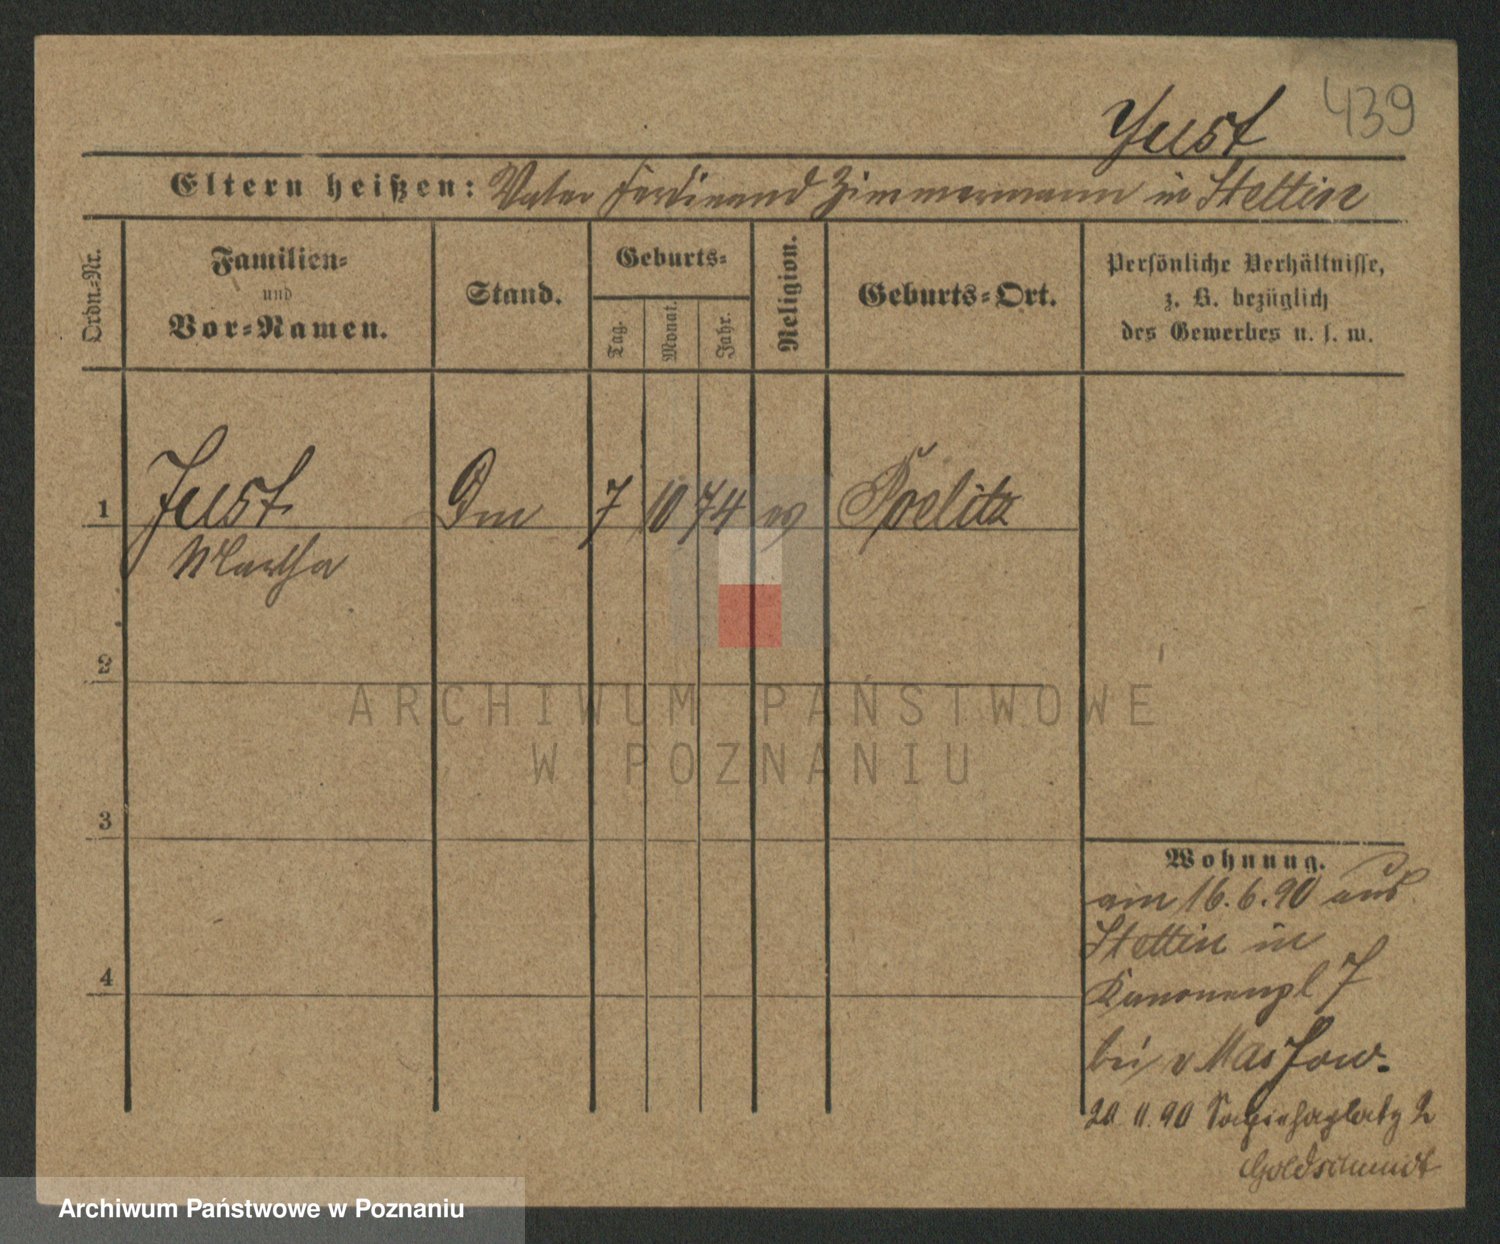 439
Just
Eltern heißen: Vater Ferdinand Zimmermann in Stettin
Ordn.-Nr.
Familien-
und
Vor-Namen.
Stand.
Geburts-
Tag.
Monat.
Jahr.
Religion.
Geburts-Ort.
Persönliche Verhältnisse,
z. B. bezüglich
des Gewerbes u. s. w.
1 Just 7 10 74 ev Poelitz
Martha
2
ARCHIWUM PAŃSTWOWE
W POZNANIU
3
4
Wohnung.
am 16.6.90 aus
Stettin in
Kanonenpl 7
bei v Massow.
20.11.90 Sapiehaplatz 2
Goldschmidt
Archiwum Państwowe w Poznaniu